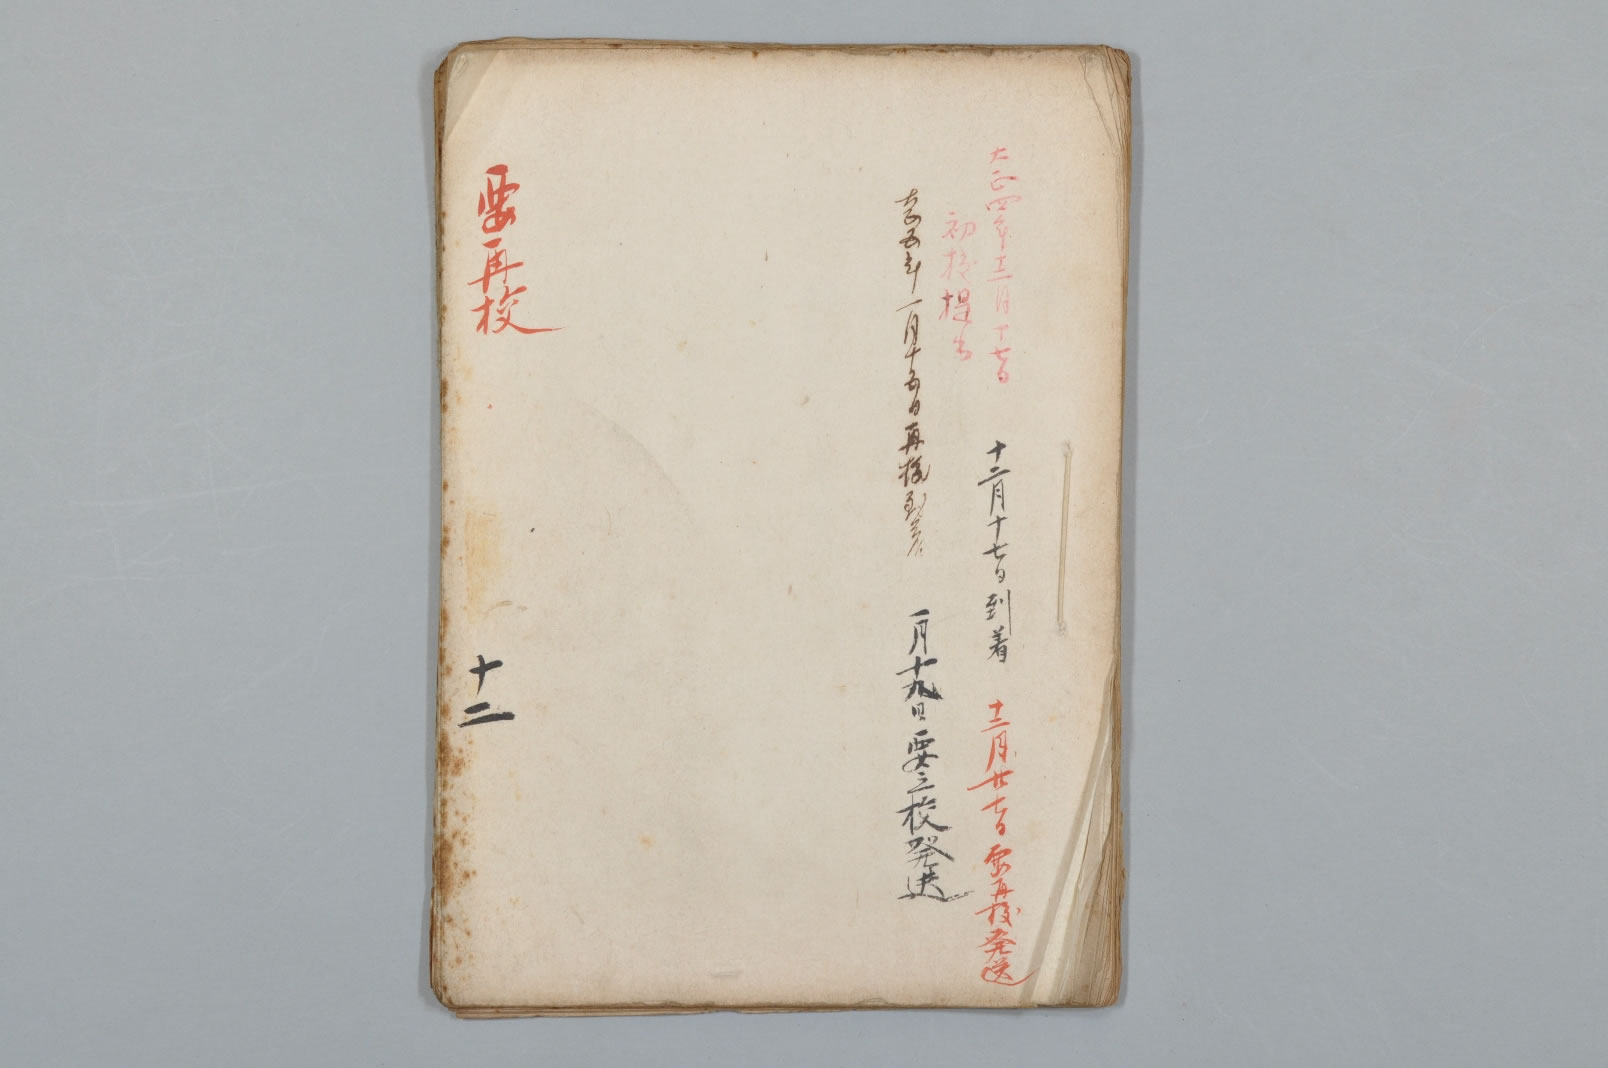 大正四年十二月十七日
初校提出
十二月十七日到着
十二月廿七日要再校発送
大正五年一月十五日再校到着
一月十九日要三校発送
要再校
十二